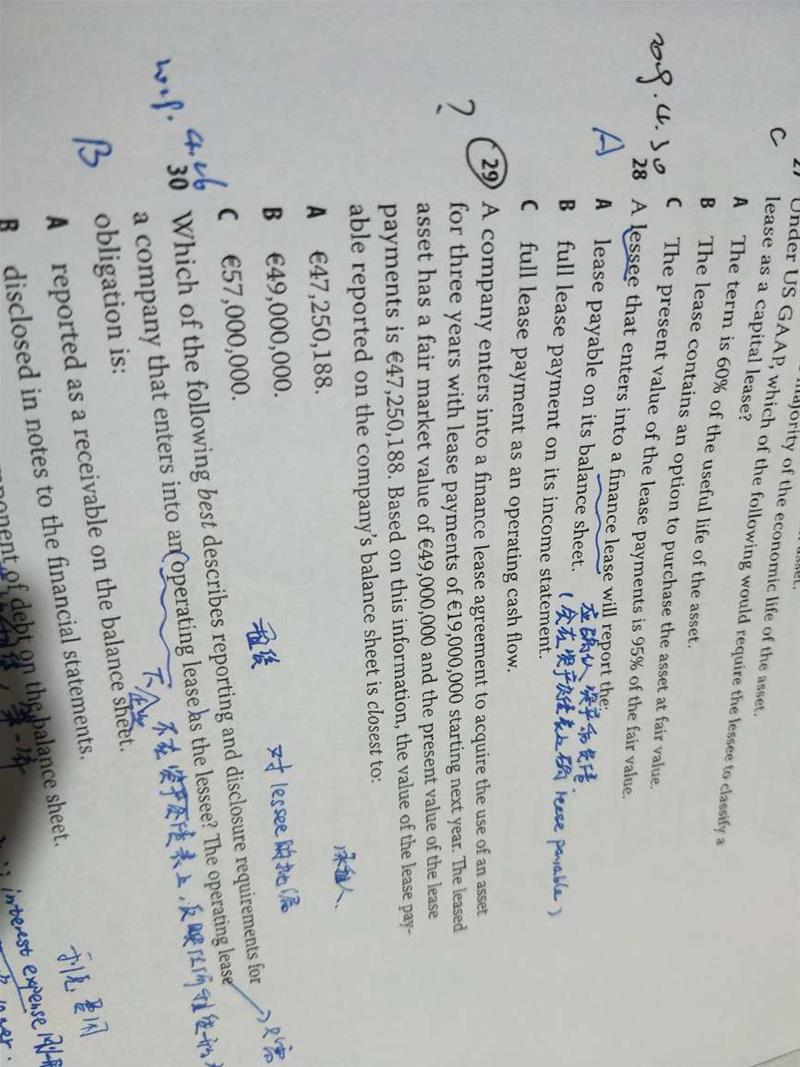 Under US GAAP, which of the following would require the lessee to classify a
lease as a capital lease?
C
A The term is 60% of the useful life of the asset.
B The lease contains an option to purchase the asset at fair value.
C The present value of the lease payments is 95% of the fair value.
28 A lessee that enters into a finance lease will report the:
A
A lease payable on its balance sheet.
B full lease payment on its income statement.
C full lease payment as an operating cash flow.
lease payable)
?
29 A company enters into a finance lease agreement to acquire the use of an asset
for three years with lease payments of €19,000,000 starting next year. The leased
asset has a fair market value of €49,000,000 and the present value of the lease
payments is €47,250,188. Based on this information, the value of the lease pay-
able reported on the company's balance sheet is closest to:
A €47,250,188.
承租人.
B €49,000,000.
C €57,000,000.
对 lessee
4.26
30 Which of the following best describes reporting and disclosure requirements for
a company that enters into an operating lease as the lessee? The operating lease
obligation is:
B
A reported as a receivable on the balance sheet.
B disclosed in notes to the financial statements.
component of debt on the balance sheet.
interest expense